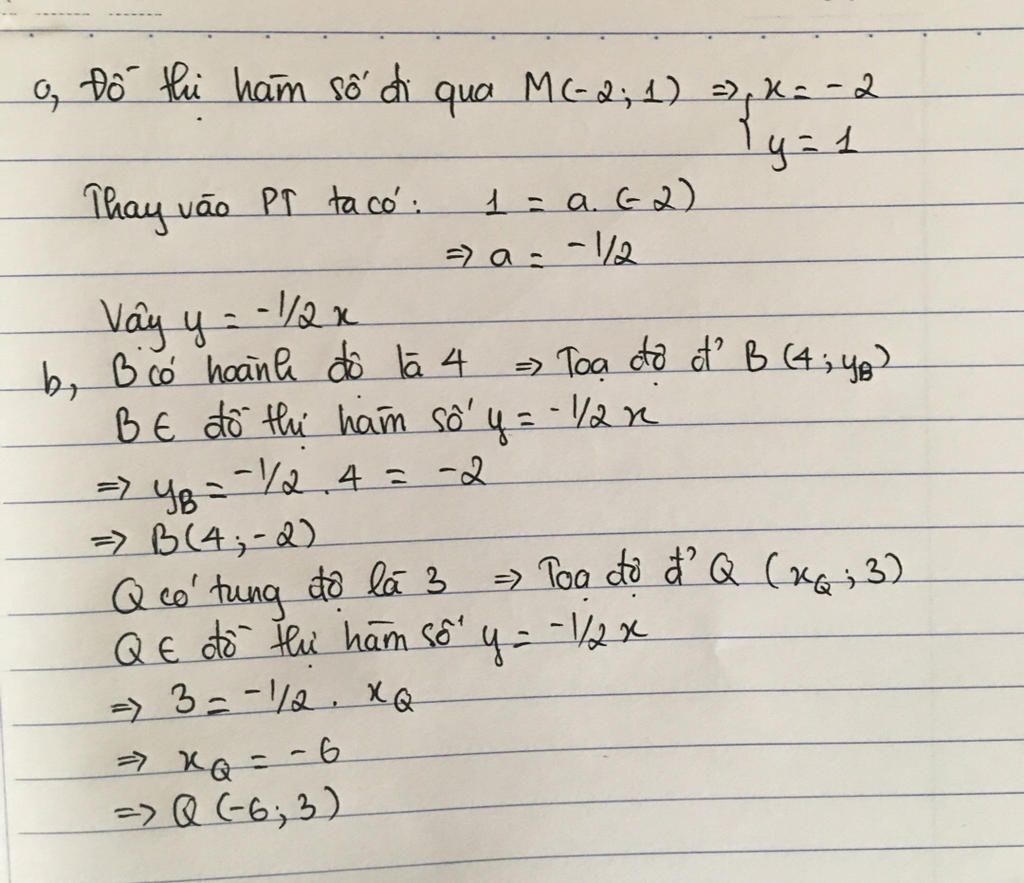 a, Đồ thị hàm số đi qua M(-2; 1) => { x = -2
y = 1
Thay vào PT ta có: 1 = a. (-2)
=> a = -1/2
Vậy y = -1/2 x
b, B có hoành độ là 4 => Toạ độ đ' B (4; yB)
B ∈ đồ thị hàm số y = -1/2 x
=> yB = -1/2 . 4 = -2
=> B(4; -2)
Q có tung độ là 3 => Toạ độ đ' Q (xQ; 3)
Q ∈ đồ thị hàm số y = -1/2 x
=> 3 = -1/2 . xQ
=> xQ = -6
=> Q (-6; 3)